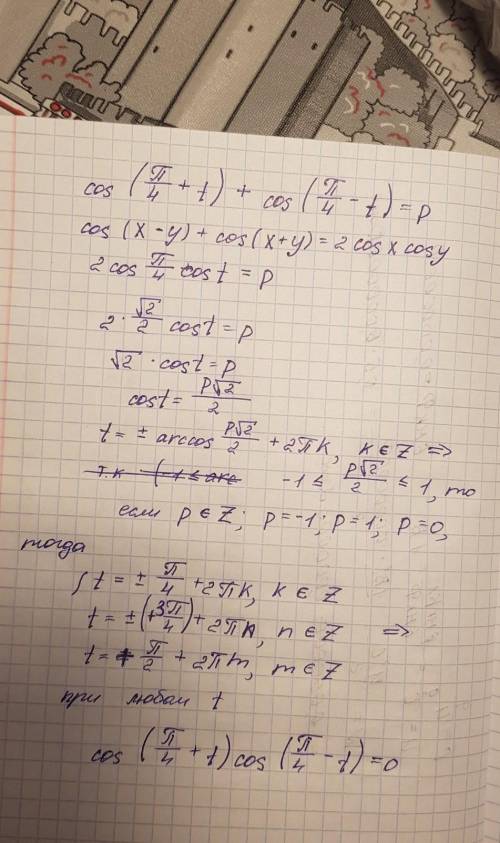 cos (π/4 + t) + cos (π/4 - t) = p
cos (x - y) + cos (x + y) = 2 cos x cos y
2 cos π/4 cos t = p
2 · √2/2 cos t = p
√2 · cos t = p
cos t = p√2/2
t = ± arccos p√2/2 + 2πk, k ∈ Z ⇒
т.к (-1 ≤ arc -1 ≤ p√2/2 ≤ 1, то
если p ∈ Z; p = -1; p = 1; p = 0,
тогда
{ t = ± π/4 + 2πk, k ∈ Z
t = ± (+3π/4) + 2πn, n ∈ Z ⇒
t = ± π/2 + 2πm, m ∈ Z
при любом t
cos (π/4 + t) cos (π/4 - t) = 0